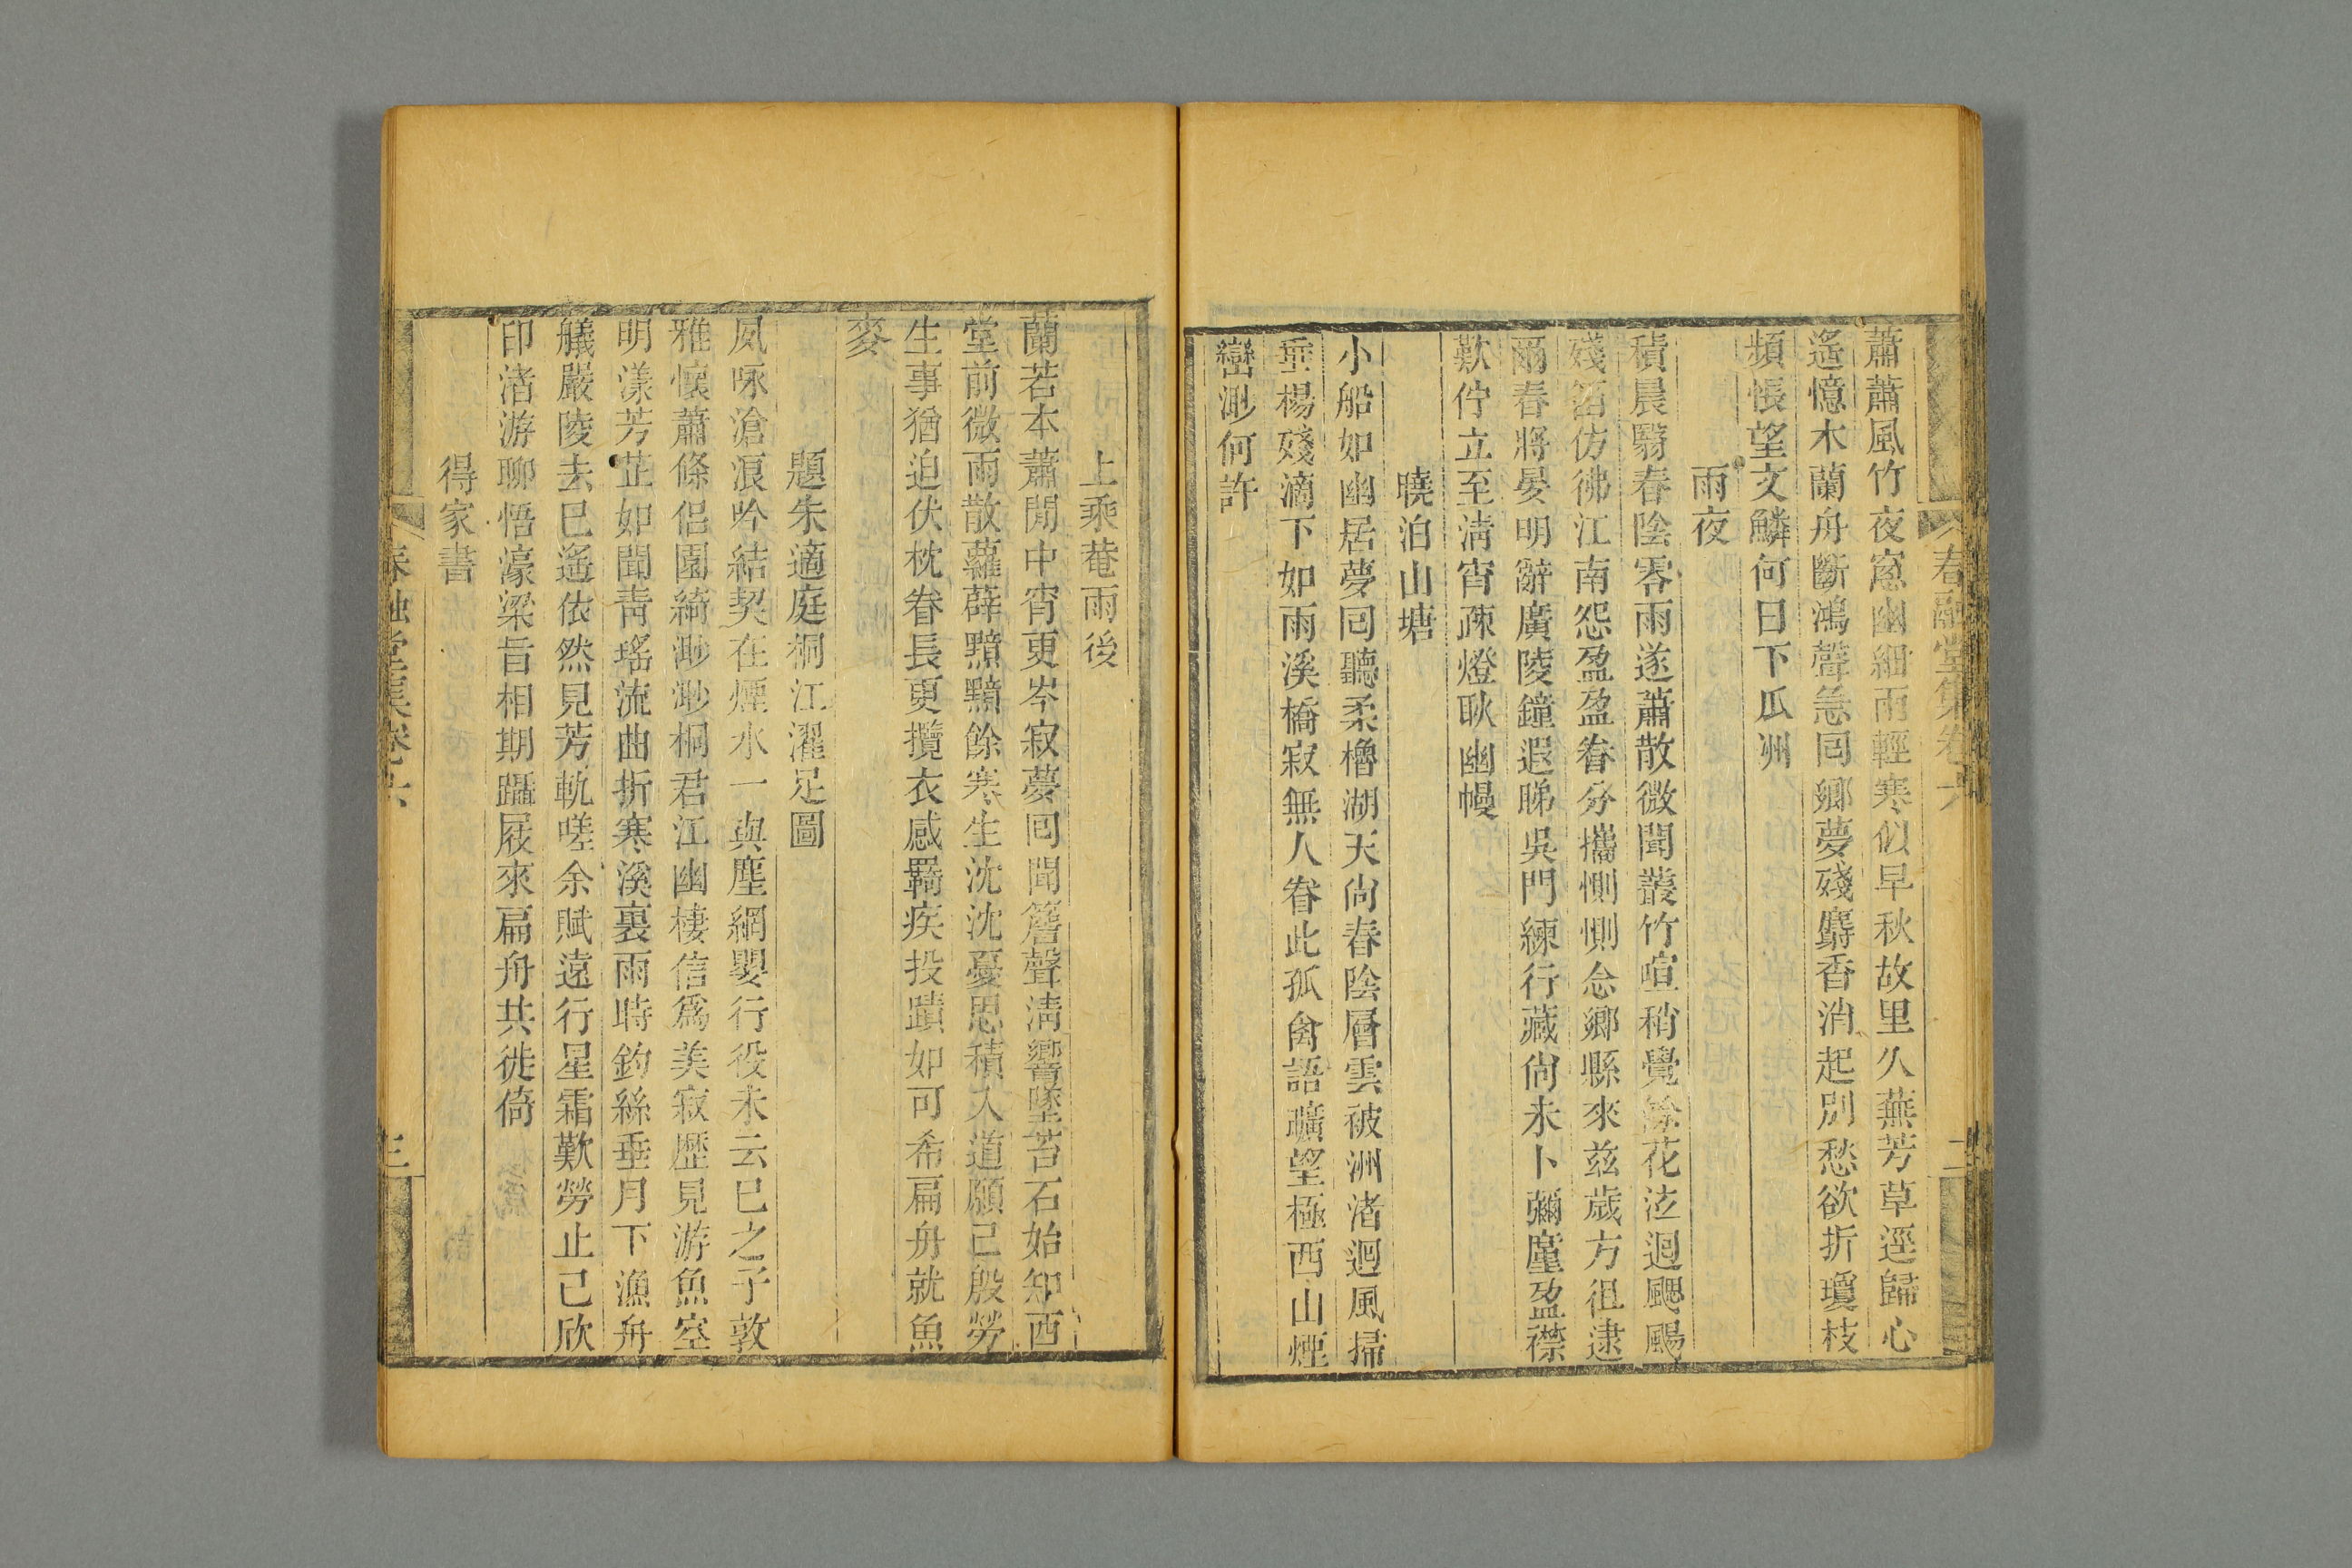 春融堂集卷六
二
蕭蕭風竹夜窻幽細雨輕寒似早秋故里久蕪芳草逕歸心
遙憶木蘭舟斷鴻聲急囘鄉夢殘麝香消起別愁欲折瓊枝
頻悵望文鱗何日下瓜洲
雨夜
積晨翳春陰零雨遂蕭散微聞叢竹喧稍覺餘花泫迴颸颺
殘笛仿彿江南怨盈盈眷分攜惻惻念鄉縣來兹歲方徂逮
爾春將晏明辭廣陵鐘遐睇吳門練行藏尙未卜彌塵盈襟
歎佇立至淸宵疎燈耿幽幔
曉泊山塘
小船如幽居夢囘聽柔櫓湖天尙春陰層雲被洲渚迴風掃
垂楊殘滴下如雨溪橋寂無人眷此孤禽語曠望極西山煙
巒渺何許
上乘菴雨後
蘭若本蕭閒中宵更岑寂夢囘聞簷聲淸響墜苔石始知西
堂前微雨散蘿薜黯黯餘寒生沈沈憂思積人道願已殷勞
生事猶迫伏枕眷長更攬衣感羈疾投蹟如可希扁舟就魚
麥
題朱適庭桐江濯足圖
夙咏滄浪吟結契在煙水一與塵網嬰行役未云已之子敦
雅懷蕭條侶園綺渺渺桐君江幽棲信爲美寂歷見游魚空
明漾芳芷如聞靑瑤流曲折寒溪裏雨時釣絲垂月下漁舟
艤嚴陵去已遙依然見芳軌嗟余賦遠行星霜歎勞止已欣
印渚游聊悟濠梁旨相期躡屐來扁舟共徙倚
得家書
春融堂集卷六
三